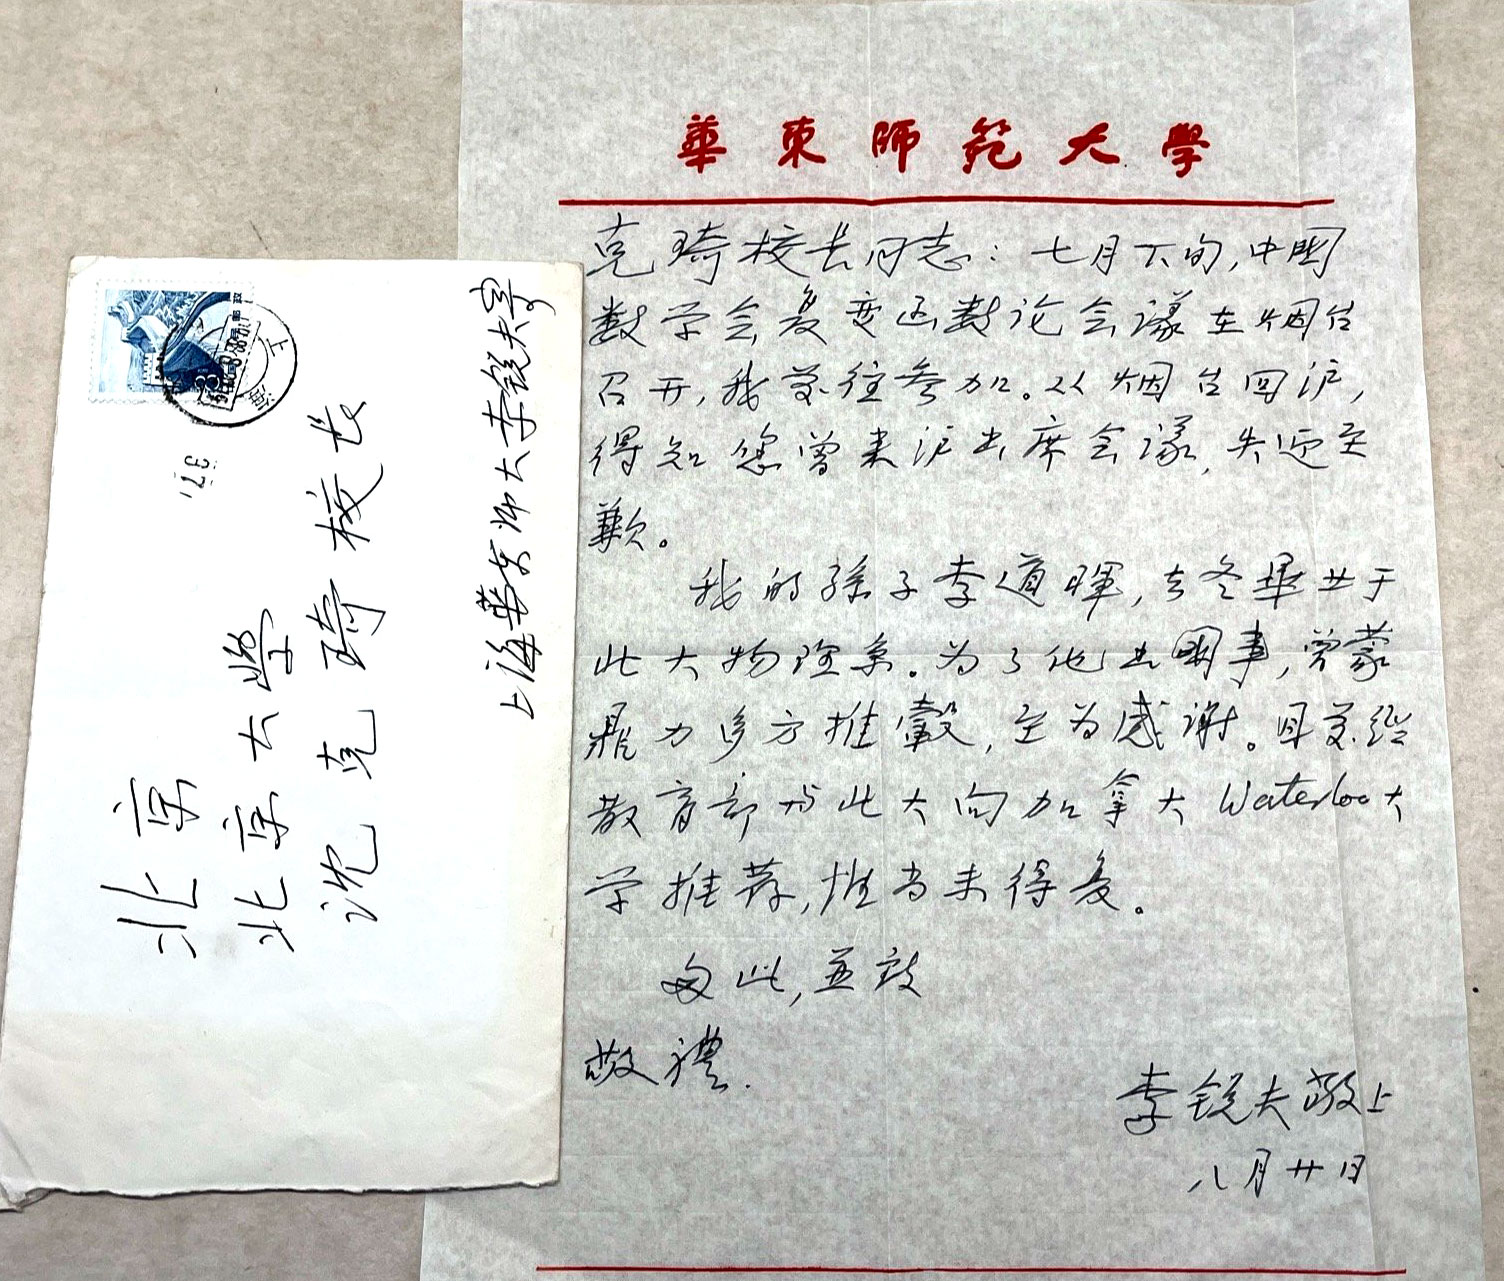 華東師範大學
克琦校长同志：七月下旬，中国
数学会复变函数论会议在烟台
召开，我前往参加。从烟台回沪，
得知您曾来沪出席会议，失迎至
歉。
我的孫子李道暉，去冬畢业于
北大物理系。为了他出国事，曾蒙
鼎力多方推轂，至为感谢。目前经
教育部与北大向加拿大Waterloo大
学推荐，惟尚未得复。
匆此，並致
敬禮.
李锐夫敬上
八月廿日
北京
北京大學
沈克琦校长
上海華东师大李锐夫寄
上海